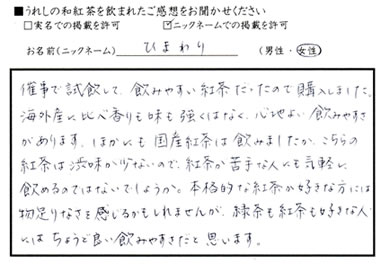 ■うれしの和紅茶を飲まれたご感想をお聞かせください
□実名での掲載を許可 ☑ニックネームでの掲載を許可
お名前(ニックネーム) ひまわり (男性・女性)
催事で試飲して、飲みやすい紅茶だったので購入しました。
海外産に比べ香りも味も強くはなく、心地よい飲みやすさ
があります。ほかにも国産紅茶は飲みましたが、こちらの
紅茶は渋味が少ないので、紅茶が苦手な人にも気軽に
飲めるのではないでしょうか。本格的な紅茶が好きな方には
物足りなさを感じるかもしれませんが、緑茶も紅茶も好きな人
にはちょうど良い飲みやすさだと思います。